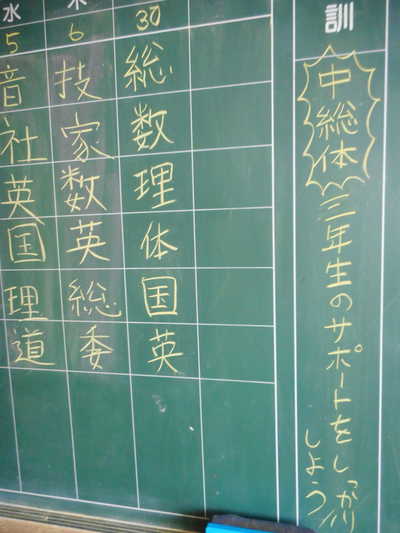 水 木
5 6 30
音 技 総
社 家 数
英 数 理
国 英 体
理 総 国
道 委 英
訓
中総体
三年生のサポートをしっかり
しよう